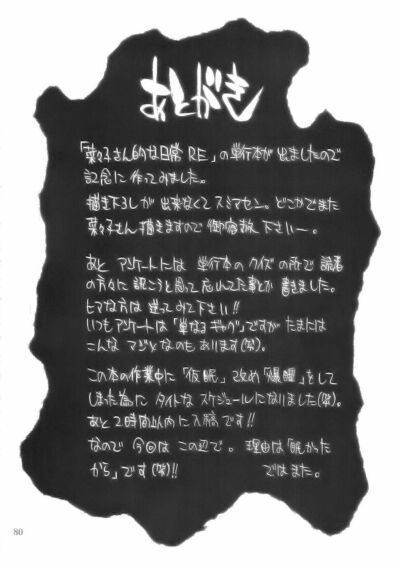 あとがき
「菜々子さん的な日常RE」の単行本が出ましたので
記念に作ってみました。
描き下ろしが出来なくてスミマセン。どこかでまた
菜々子さん描きますので御容赦下さいー。
あと アンケートには 単行本の クイズ の所で 読者
の方々に 訊こうと思って 忘れてた事とか 書きました。
ヒマな方は 送ってみて下さい!!
いつもアンケートは「単なるギャグ」ですが たまには
こんな マジメなのも あります(笑)。
この本の作業中に「仮眠」改め「爆睡」をして
しまった為に タイトな スケジュールになりました(笑)。
あと2時間以内に入稿です!!
なので 今回は この辺で。理由は「眠かった
から」です(笑)!!
ではまた。
80